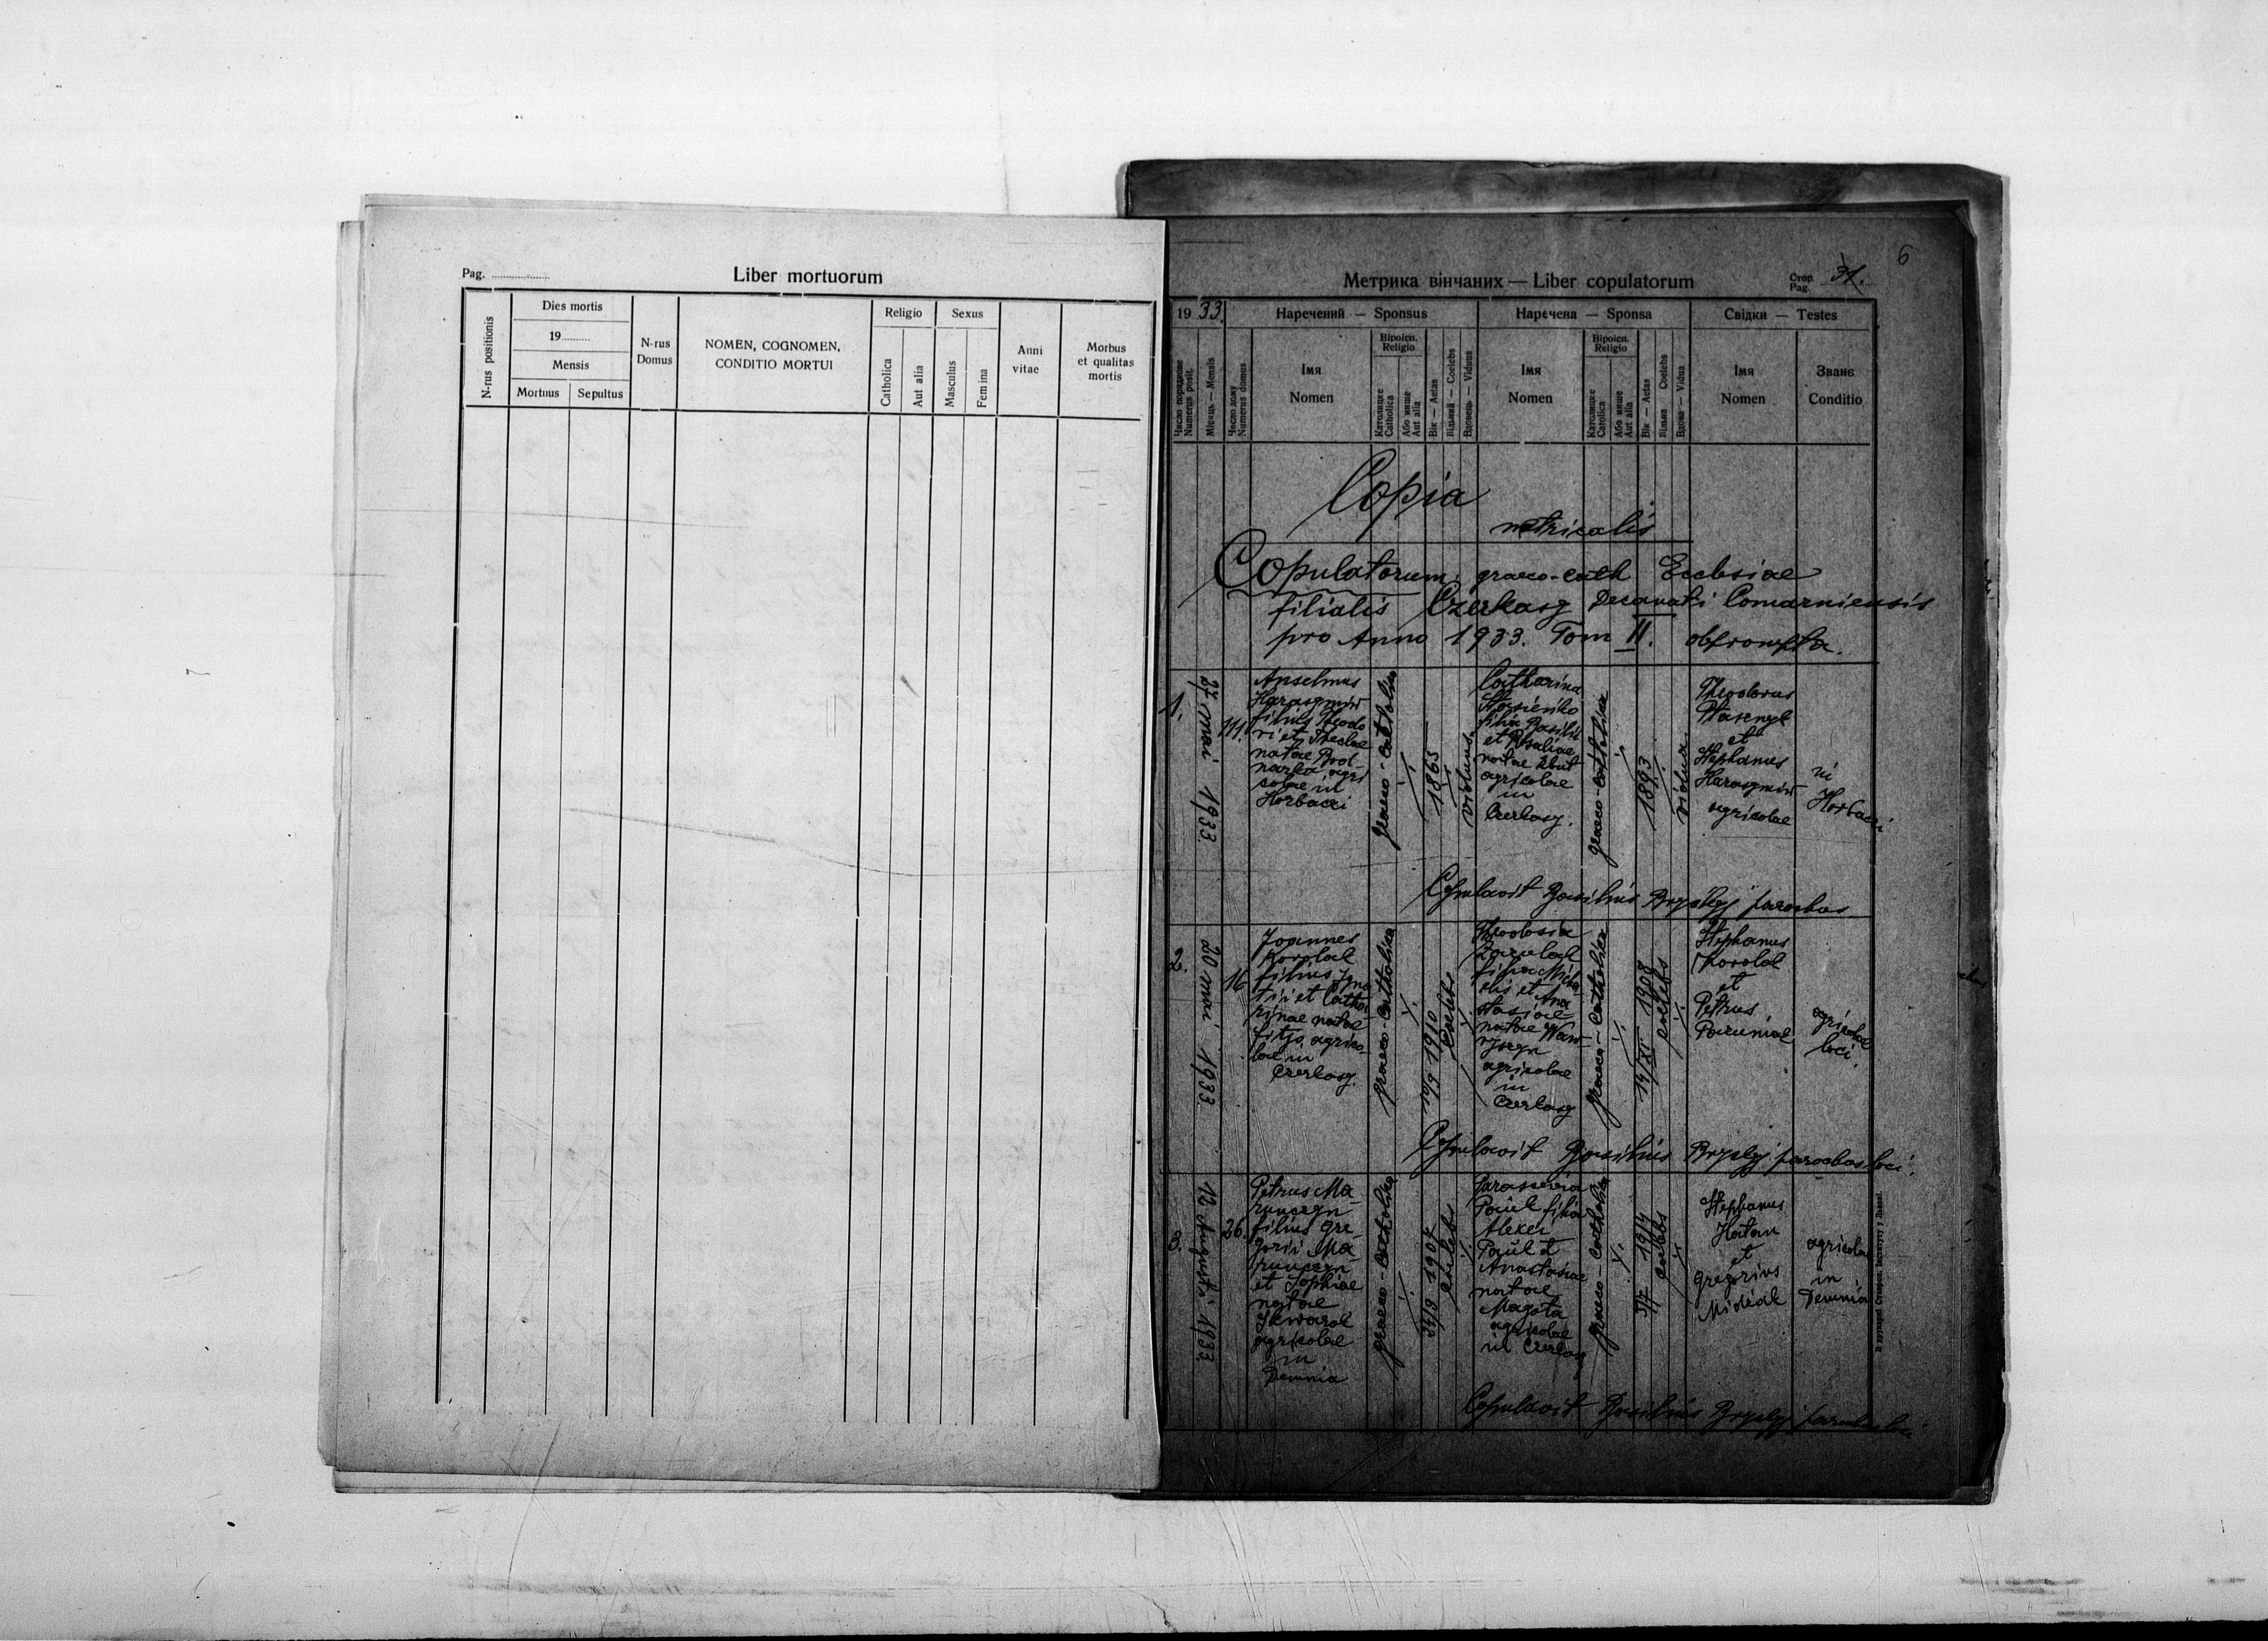 Pag.
Liber mortuorum
N-rus positionis
Dies mortis
19
Mensis
Mortuus
Sepultus
N-rus
Domus
NOMEN, COGNOMEN,
CONDITIO MORTUI
Religio
Catholica
Aut alia
Sexus
Masculus
Femina
Anni
vitae
Morbus
et qualitas
mortis
6
Метрика вінчаних — Liber copulatorum
Стор.
Pag.
31.
19 33.
Наречений — Sponsus
Наречена — Sponsa
Свідки — Testes
Число порядкове
Numerus posit.
Місяць — Mensis
Число дому
Numerus domus
Імя
Nomen
Віроісп.
Religio
Католицке
Catholica
Або инше
Aut alia
Вік — Aetas
Вільний — Coelebs
Вдовець — Viduus
Імя
Nomen
Віроісп.
Religio
Католицке
Catholica
Або инше
Aut alia
Вік — Aetas
Вільна Coelebs
Вдова — Vidua
Імя
Nomen
Званє
Conditio
Copia
metricalis
Copulatorum graeco-cath Ecclesiae
filialis Czerkasy Decanati Comarniensis
pro Anno 1933. Tom II.
1.
27 mai 1933.
111.
Anselmus
Harasymiw
filius Theodo
ri et Theclae
natae Bod
narka agri
colae in
Horbacci
graeco-catholica
1865
viduus
Catharina
Stasieńko
filia Basilii
et Rosaliae
natae
agricolae
in
Czerkasy.
graeco-catholica
1893
vidua
Theodorus
et
Stephanus
Harasymiw
agricolae
in
Horbacci
Copulavit Basilius Bryzhyj parochus
2.
20 mai 1933
16
Joannes
filius Igna
tii et Catha
rinae natae
Fitjo agrico
lae in
Czerkasy.
graeco-catholica
1910
coelebs
Theodosia
filia Micha
elis et Ana
stasiae
natae Waw
agricolae
in
Czerkasy
graeco-catholica
14/XI 1908
coelebs
Stephanus
et
Petrus
agricolae
loci
Copulavit Basilius parochus loci.
3.
12 Augusti 1933.
26.
Petrus Ma
filius Gre
gorii Ma
et Sophiae
natae
agricolae
in
Demnia
graeco-catholica
1907
coelebs
Parasceva
filia
Alexii
et
Anastasiae
natae
Magota
agricolae
in Czerkasy
graeco-catholica
3/7 1914
coelebs
Stephanus
Hatan
et
Gregorius
agricolae
in
Demnia
Copulavit Basilius parochus loci.
В друкарні Ставроп. Інституту у Львові.